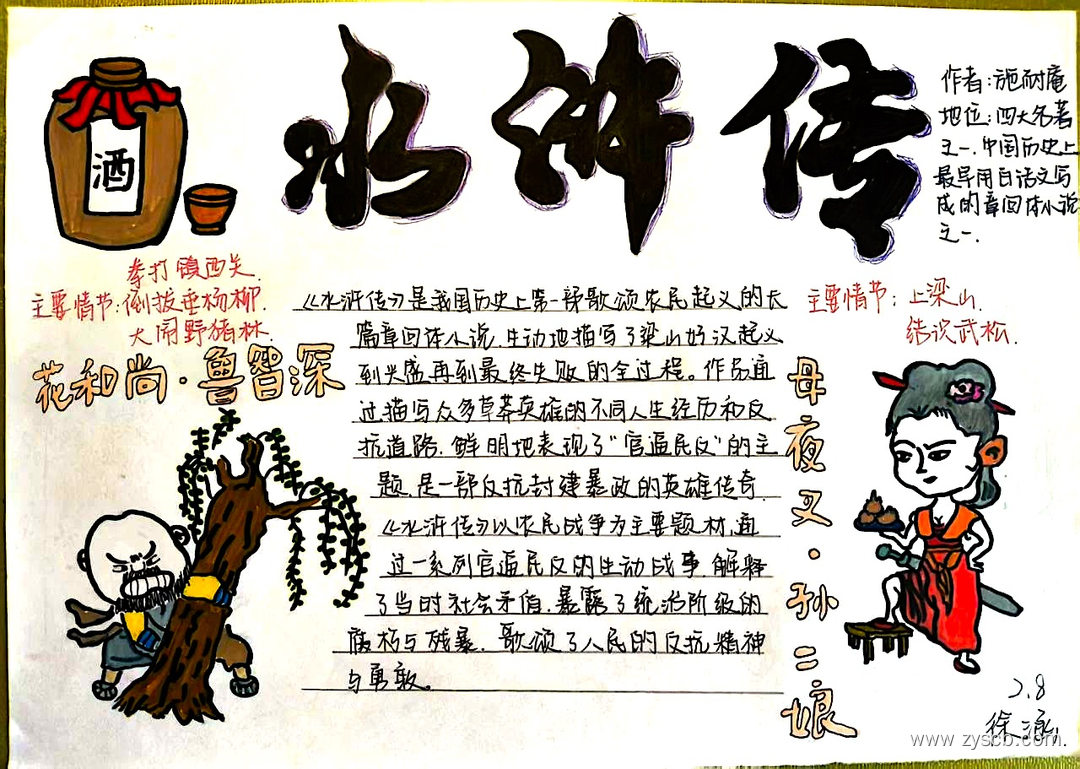 水浒传
酒
作者:施耐庵
地位:四大名著
之一.中国历史上
最早用白话文写
成的章回体小说
之一.
拳打镇西关.
主要情节:倒拔垂杨柳.
大闹野猪林.
花和尚·鲁智深
《水浒传》是我国历史上第一部歌颂农民起义的长
篇章回体小说.生动地描写了梁山好汉起义
到兴盛再到最终失败的全过程。作品通
过描写众多草莽英雄的不同人生经历和反
抗道路.鲜明地表现了"官逼民反"的主
题.是一部反抗封建暴政的英雄传奇.
《水浒传》以农民战争为主要题材,通
过一系列官逼民反的生动故事.解释
了当时社会矛盾.暴露了统治阶级的
腐朽与残暴.歌颂了人民的反抗精神
与勇敢。
主要情节:上梁山.
结识武松.
母夜叉·孙二娘
2.8
徐
www.zyscb.com